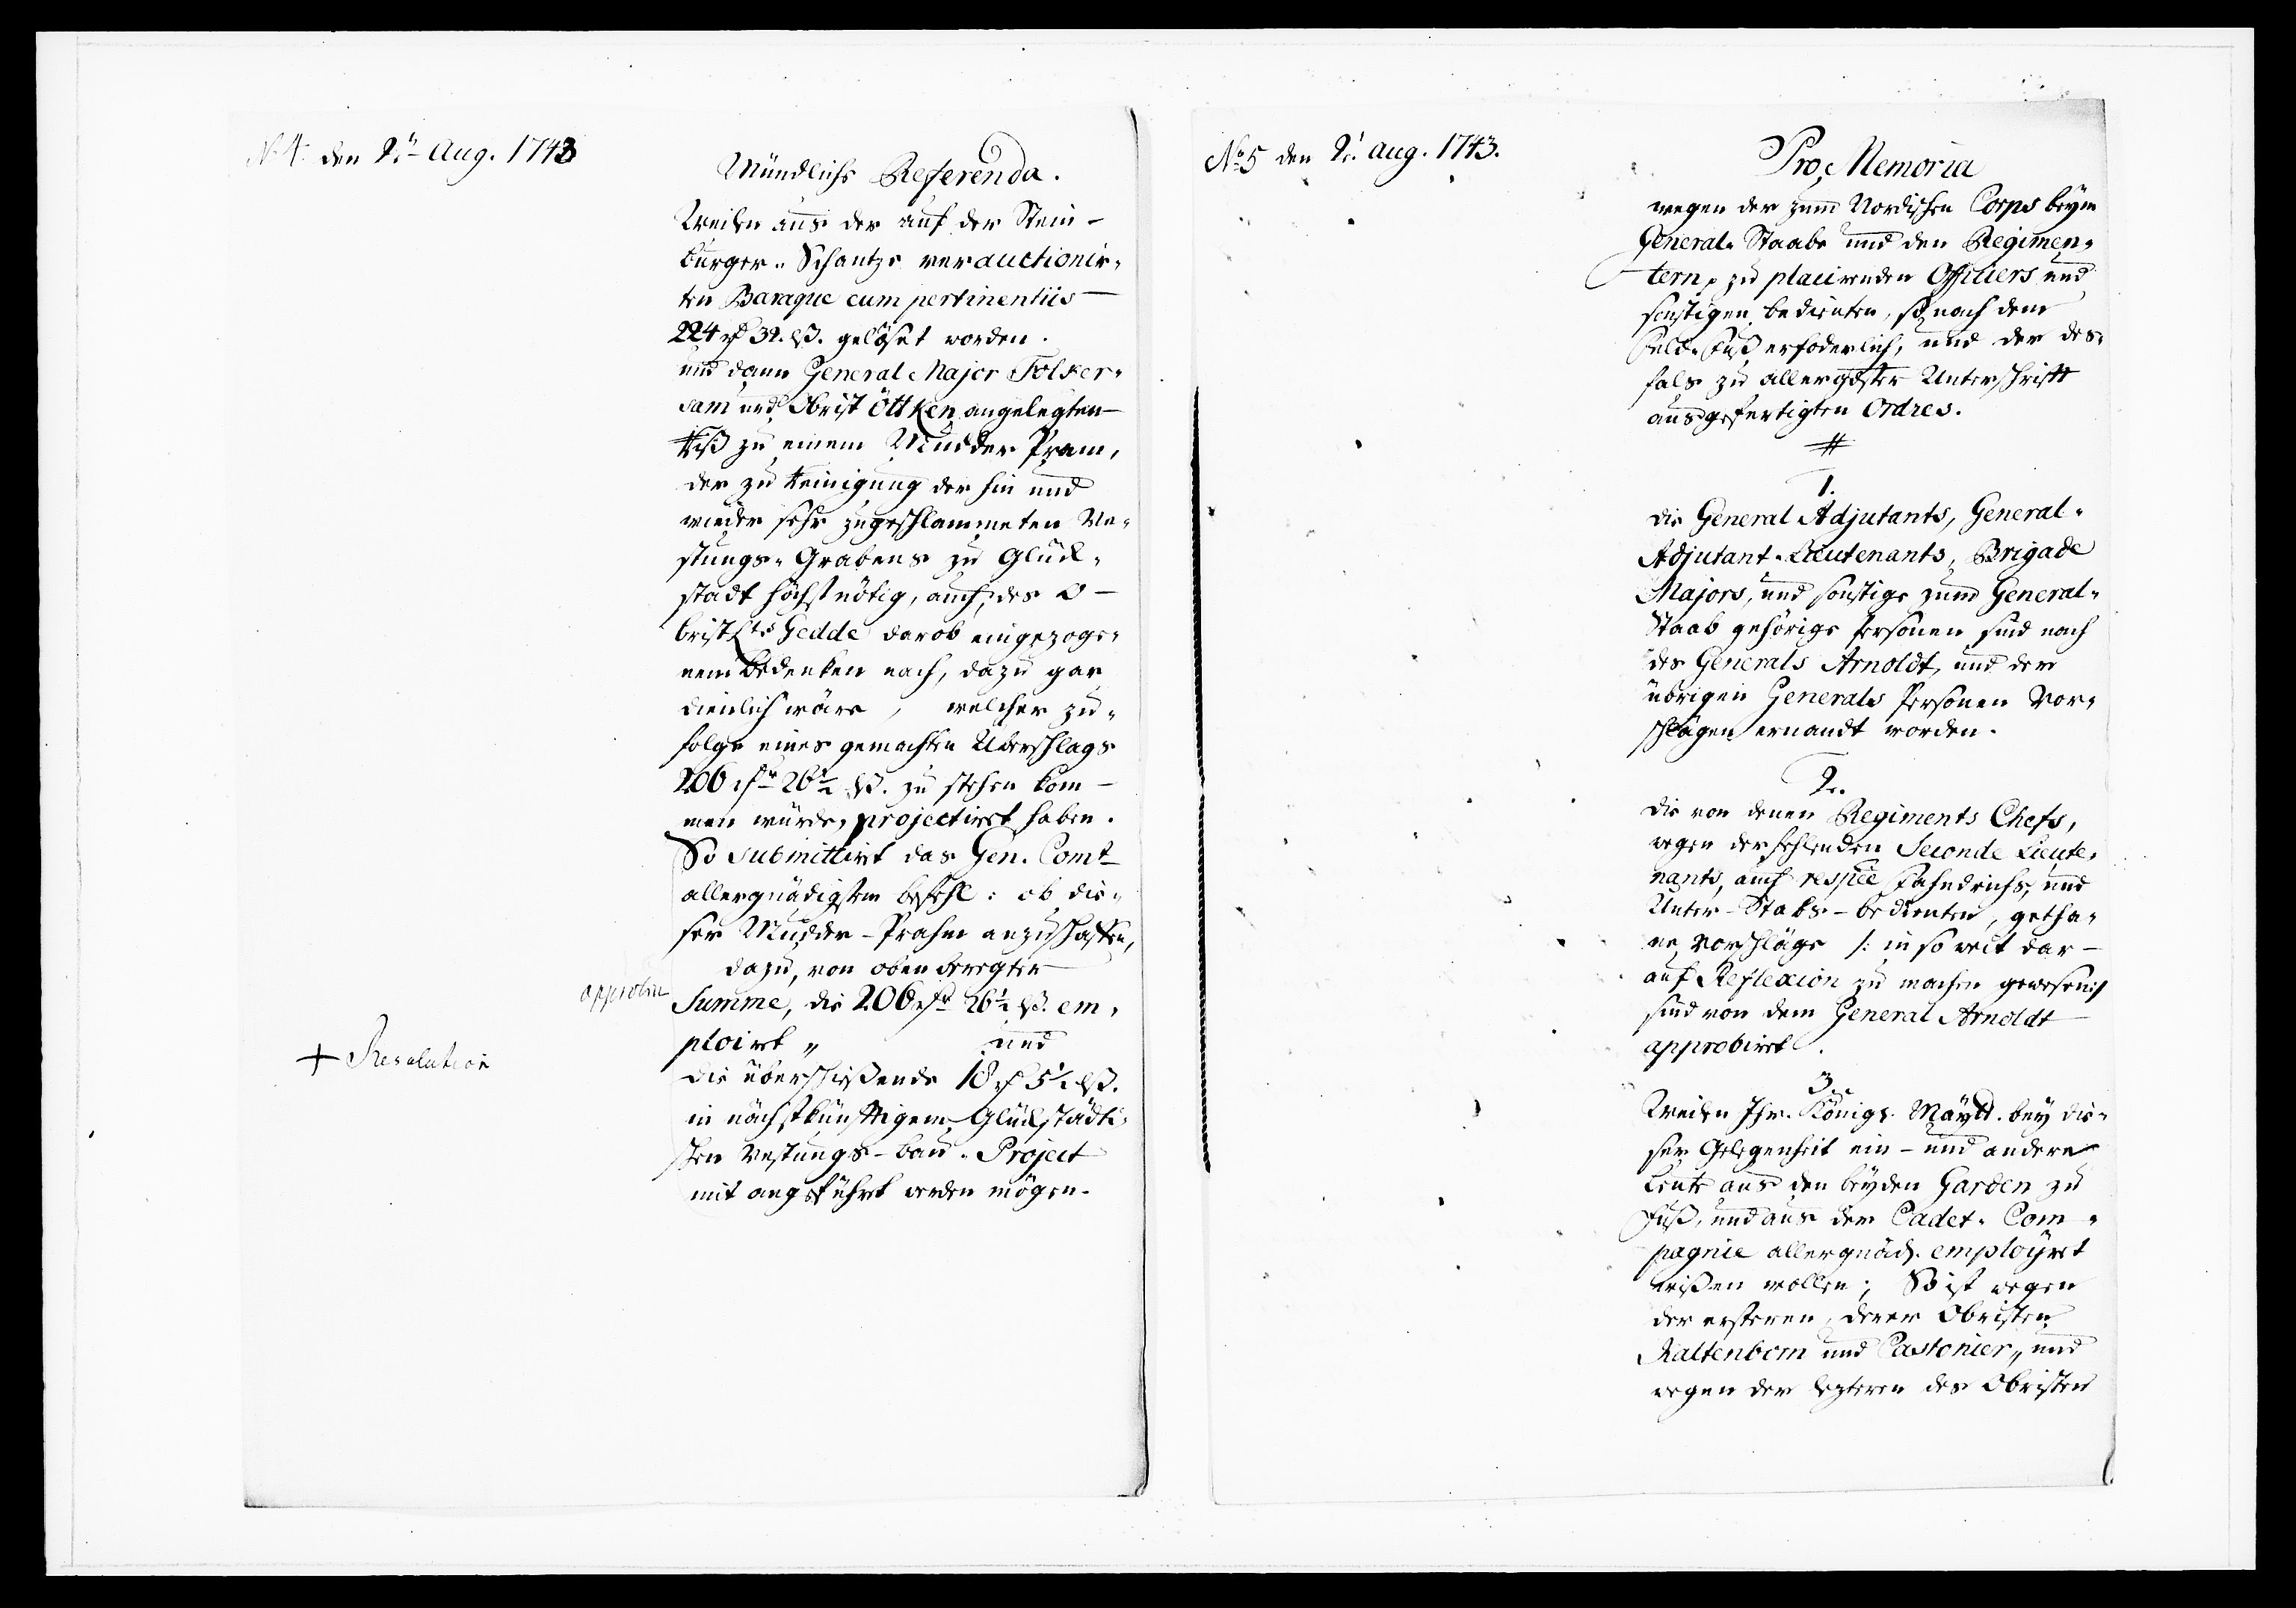 N. 4. den 2t. Aug. 1743
Mündliche Referenda.
Weilen aus der auf der Stein-
burger-Schantze verauctionir-
ten Baraque cum pertinentiis
224 rf 32. ß. gelöset worden.
und dann General Major Folker-
sam und Obrist Öttken angelegten
Riß zu einem Mudder Pram,
der zu Reinigung der hin und
wieder sehr zugeschlammeten Ve-
stungs-Grabens zu Glück-
stadt höchstnötig, auch, des O-
bristLts Gedde darob eingezoge-
nem Bedenken nach, dazu gar
dienlich wäre, welcher zu-
folge eines gemachten Überschlags
206 rf 26½ ß. zu stehen kom-
men würde, projectiret haben.
So submittiret das Gen. Comt
allergnädigstem befehl: ob die-
ser Mudder-Prahm anzuschaffen,
dazu, von oben beregter
approbire
Summe, die 206 rf 26½ ß. em-
ploiret " und
+ Resolution
die überschießende 18 rf 5½ ß.
in nächstkünfftigem Glückstädti-
schen Vestungs-bau-Project
mit angeführt werden mögen.
No. 5 den 2t. Aug. 1743.
Pro Memoria
wegen der zum Nordischen Corps beym
General-Staabe und den Regimen-
tern, zu placirenden Officiers und
sonstigen bedienten, so nach dem
Feld-Fuß erfoderlich, und der des-
fals zu allergdster Unterschrifft
ausgefertigten Ordres.
#
1.
Die General Adjutants, General-
Adjutant-Lieutenants, Brigade
Majors, und sonstige zum General-
Staab gehörige Personen sind nach
des Generals Arnoldt, und der
übrigen Generals Personen Vor-
schlägen ernandt worden.
2.
Die von denen Regiments Chefs,
wegen der fehlenden Seconde Lieute-
nants, auch respce Fähndrichs, und
Unter-Stabs-bedienten, getha-
ne Vorschläge /: in so weit dar-
auf Reflexion zu machen gewesen:/
sind von dem General Arnoldt
approbiret.
3.
Weilen Ihr. Königl. Maytt. bey die-
ser Gelegenheit ein- und andere
Leute aus den beyden Garden zu
Fuß, und aus der Cadet-Com-
pagnie allergnäd. employiret
wißen wollen; So ist wegen
der ersteren, derer Obristen
Kaltenborn und Castonier, und
wegen der lezteren des Obristen